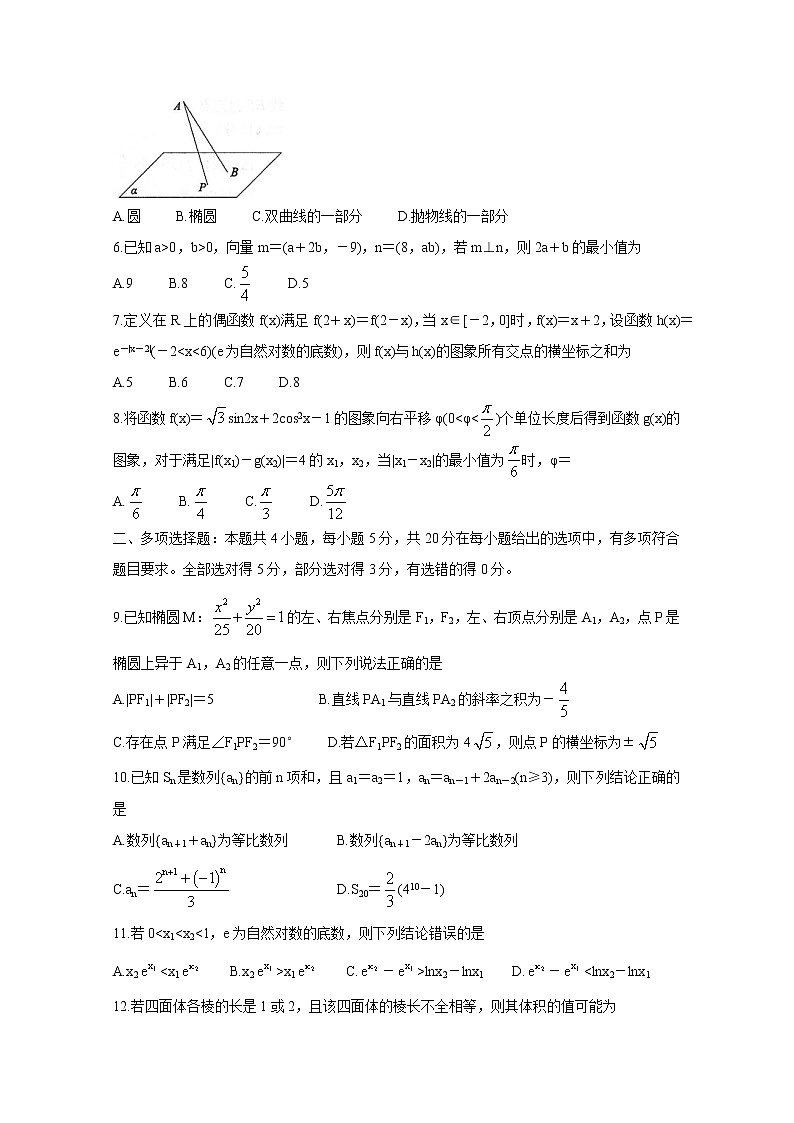 A
B
P
α
A.圆 B.椭圆 C.双曲线的一部分 D.抛物线的一部分
6.已知a>0，b>0，向量m＝(a＋2b，－9)，n＝(8，ab)，若m⊥n，则2a＋b的最小值为
A.9 B.8 C.5/4 D.5
7.定义在R上的偶函数f(x)满足f(2＋x)＝f(2－x)，当x∈[－2，0]时，f(x)＝x＋2，设函数h(x)＝
e^{－|x－2|}(－2<x<6)(e为自然对数的底数)，则f(x)与h(x)的图象所有交点的横坐标之和为
A.5 B.6 C.7 D.8
8.将函数f(x)＝√3sin2x＋2cos²x－1的图象向右平移φ(0<φ<π/2)个单位长度后得到函数g(x)的
图象，对于满足|f(x₁)－g(x₂)|＝4的x₁，x₂，当|x₁－x₂|的最小值为π/6时，φ＝
A.π/6 B.π/4 C.π/3 D.5π/12
二、多项选择题：本题共4小题，每小题5分，共20分在每小题给出的选项中，有多项符合
题目要求。全部选对得5分，部分选对得3分，有选错的得0分。
9.已知椭圆M：x²/25＋y²/20＝1的左、右焦点分别是F₁，F₂，左、右顶点分别是A₁，A₂，点P是
椭圆上异于A₁，A₂的任意一点，则下列说法正确的是
A.|PF₁|＋|PF₂|＝5 B.直线PA₁与直线PA₂的斜率之积为－4/5
C.存在点P满足∠F₁PF₂＝90° D.若△F₁PF₂的面积为4√5，则点P的横坐标为±√5
10.已知Sₙ是数列{aₙ}的前n项和，且a₁＝a₂＝1，aₙ＝aₙ₋₁＋2aₙ₋₂(n≥3)，则下列结论正确的
是
A.数列{aₙ₊₁＋aₙ}为等比数列 B.数列{aₙ₊₁－2aₙ}为等比数列
C.aₙ＝(2^{n+1}+(−1)^n)/3 D.S₂₀＝2/3(4¹⁰－1)
11.若0<x₁<x₂<1，e为自然对数的底数，则下列结论错误的是
A.x₂e^{x₁}<x₁e^{x₂} B.x₂e^{x₁}>x₁e^{x₂} C.e^{x₂}－e^{x₁}>lnx₂－lnx₁ D.e^{x₂}－e^{x₁}<lnx₂－lnx₁
12.若四面体各棱的长是1或2，且该四面体的棱长不全相等，则其体积的值可能为